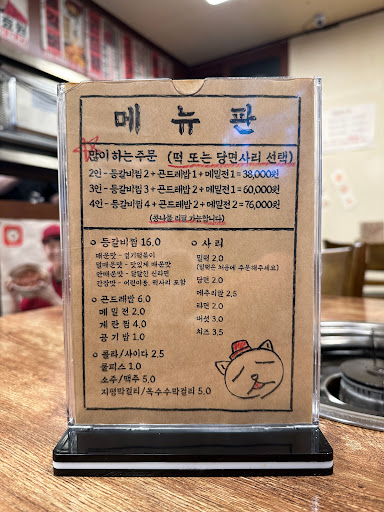 메뉴판
많이 하는 주문 (떡 또는 당면사리 선택)
2인 - 등갈비찜 2 + 곤드레밥 1 + 메밀전 1 = 38,000원
3인 - 등갈비찜 3 + 곤드레밥 2 + 메밀전 1 = 60,000원
4인 - 등갈비찜 4 + 곤드레밥 2 + 메밀전 2 = 76,000원
(콩나물 리필 가능합니다)
등갈비찜 16.0
매운맛 -
덜매운맛 - 맛있게 매운맛
안매운맛 -
간장맛 - 어린이용, 떡사리 포함
곤드레밥 6.0
메밀전 2.0
계란찜 4.0
공기밥 1.0
콜라/사이다 2.5
쿨피스 1.0
소주/맥주 5.0
지평막걸리/옥수수막걸리 5.0
사리
밀떡 2.0
(밀떡은 처음에 주문해주세요)
당면 2.0
메추리알 2.5
라면 2.0
버섯 3.0
치즈 3.5